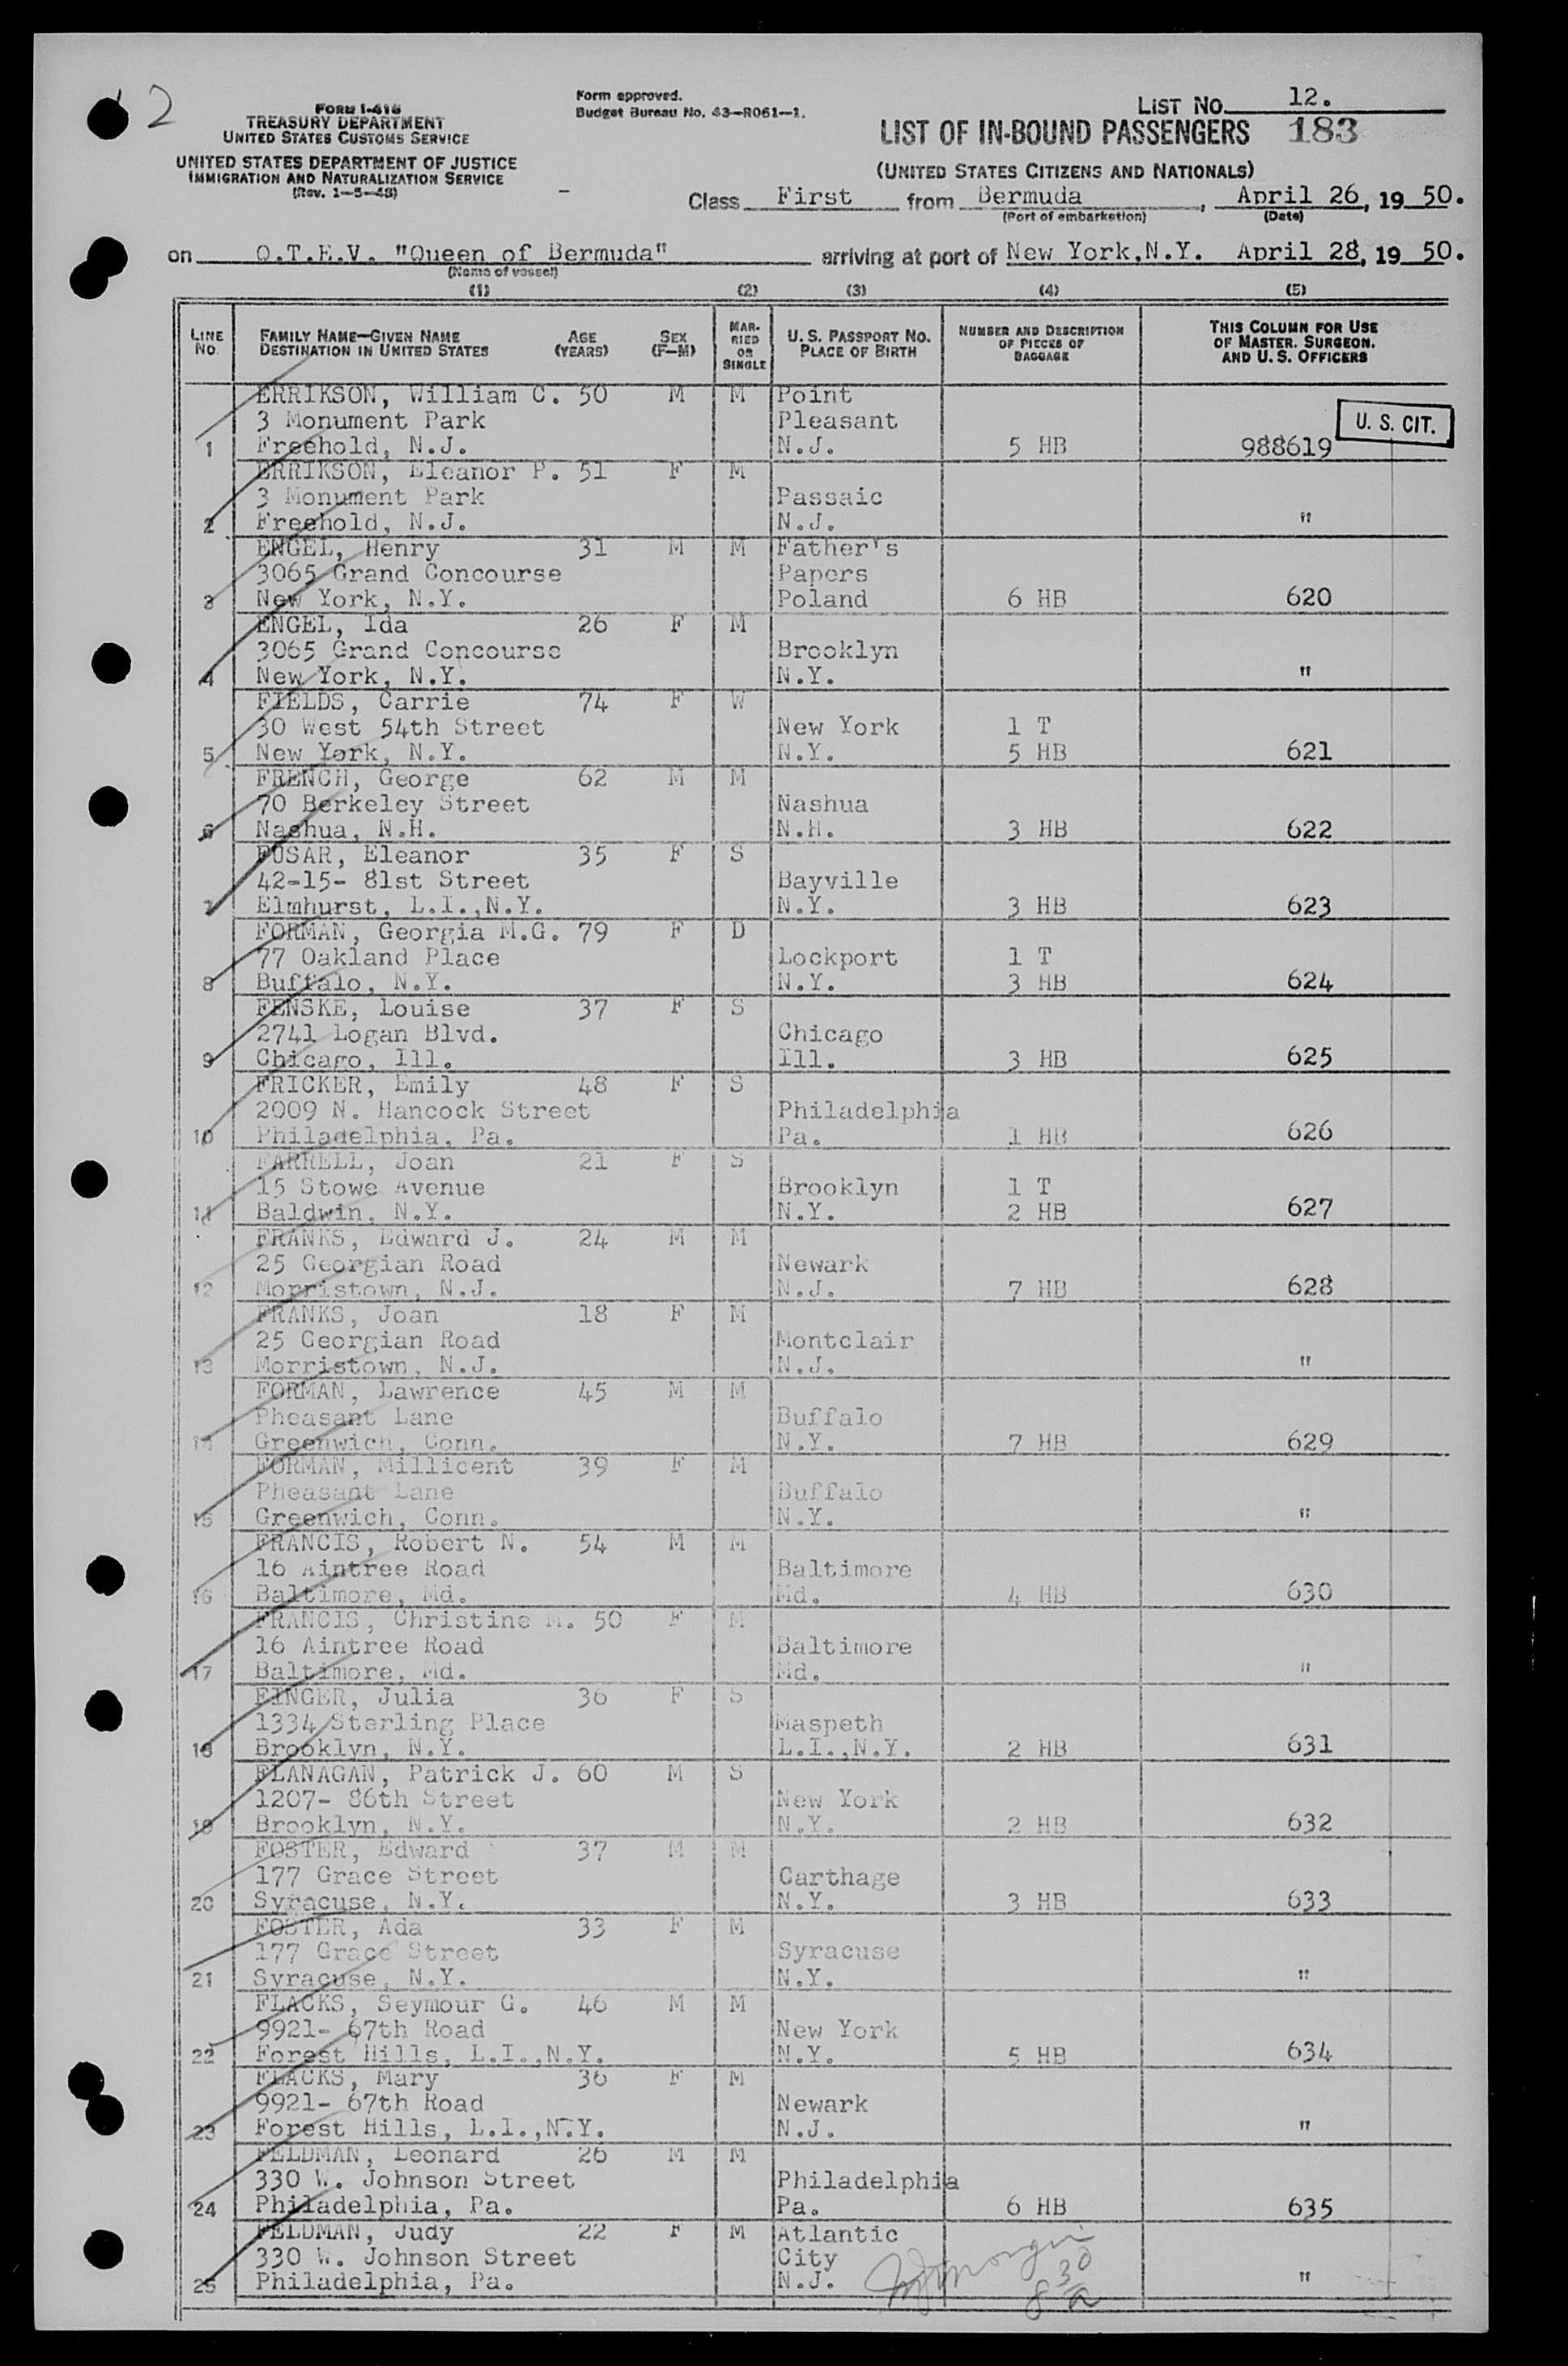 2
FORM I-418
TREASURY DEPARTMENT
UNITED STATES CUSTOMS SERVICE
UNITED STATES DEPARTMENT OF JUSTICE
IMMIGRATION AND NATURALIZATION SERVICE
(Rev. 1-5-48)
Form approved.
Budget Bureau No. 43-R061-1.
LIST NO. 12.
LIST OF IN-BOUND PASSENGERS 183
(UNITED STATES CITIZENS AND NATIONALS)
Class First from Bermuda, April 26, 19 50.
(Port of embarkation) (Date)
on Q.T.E.V. "Queen of Bermuda" arriving at port of New York,N.Y. April 28, 19 50.
(Name of vessel)
(1) (2) (3) (4) (5)
LINE NO. FAMILY NAME-GIVEN NAME DESTINATION IN UNITED STATES AGE (YEARS) SEX (F-M) MARRIED OR SINGLE U. S. PASSPORT NO. PLACE OF BIRTH NUMBER AND DESCRIPTION OF PIECES OF BAGGAGE THIS COLUMN FOR USE OF MASTER, SURGEON, AND U. S. OFFICERS
ERRIKSON, William C. 50 M M Point
3 Monument Park Pleasant U. S. CIT.
1 Freehold, N.J. N.J. 5 HB 988619
ERRIKSON, Eleanor P. 51 F M
3 Monument Park Passaic
2 Freehold, N.J. N.J. "
ENGEL, Henry 31 M M Father's
3065 Grand Concourse Papers
3 New York, N.Y. Poland 6 HB 620
ENGEL, Ida 26 F M
3065 Grand Concourse Brooklyn
4 New York, N.Y. N.Y. "
FIELDS, Carrie 74 F W
30 West 54th Street New York 1 T
5 New York, N.Y. N.Y. 5 HB 621
FRENCH, George 62 M M
70 Berkeley Street Nashua
6 Nashua, N.H. N.H. 3 HB 622
FUSAR, Eleanor 35 F S
42-15- 81st Street Bayville
7 Elmhurst, L.I.,N.Y. N.Y. 3 HB 623
FORMAN, Georgia M.G. 79 F D
77 Oakland Place Lockport 1 T
8 Buffalo, N.Y. N.Y. 3 HB 624
FENSKE, Louise 37 F S
2741 Logan Blvd. Chicago
9 Chicago, Ill. Ill. 3 HB 625
FRICKER, Emily 48 F S
2009 N. Hancock Street Philadelphia
10 Philadelphia, Pa. Pa. 1 HB 626
FARRELL, Joan 21 F S
15 Stowe Avenue Brooklyn 1 T
11 Baldwin, N.Y. N.Y. 2 HB 627
FRANKS, Edward J. 24 M M
25 Georgian Road Newark
12 Morristown, N.J. N.J. 7 HB 628
FRANKS, Joan 18 F M
25 Georgian Road Montclair
13 Morristown, N.J. N.J. "
FORMAN, Lawrence 45 M M
Pheasant Lane Buffalo
14 Greenwich, Conn. N.Y. 7 HB 629
FORMAN, Millicent 39 F M
Pheasant Lane Buffalo
15 Greenwich, Conn. N.Y. "
FRANCIS, Robert N. 54 M M
16 Aintree Road Baltimore
16 Baltimore, Md. Md. 4 HB 630
FRANCIS, Christine M. 50 F M
16 Aintree Road Baltimore
17 Baltimore, Md. Md. "
FINGER, Julia 36 F S
1334 Sterling Place Maspeth
18 Brooklyn, N.Y. L.I.,N.Y. 2 HB 631
FLANAGAN, Patrick J. 60 M S
1207- 86th Street New York
19 Brooklyn, N.Y. N.Y. 2 HB 632
FOSTER, Edward 37 M M
177 Grace Street Carthage
20 Syracuse, N.Y. N.Y. 3 HB 633
FOSTER, Ada 33 F M
177 Grace Street Syracuse
21 Syracuse, N.Y. N.Y. "
FLACKS, Seymour G. 46 M M
9921- 67th Road New York
22 Forest Hills, L.I.,N.Y. N.Y. 5 HB 634
FLACKS, Mary 36 F M
9921- 67th Road Newark
23 Forest Hills, L.I.,N.Y. N.J. "
FELDMAN, Leonard 26 M M
330 W. Johnson Street Philadelphia
24 Philadelphia, Pa. Pa. 6 HB 635
FELDMAN, Judy 22 F M Atlantic
330 W. Johnson Street City
25 Philadelphia, Pa. N.J. "
8 30 a